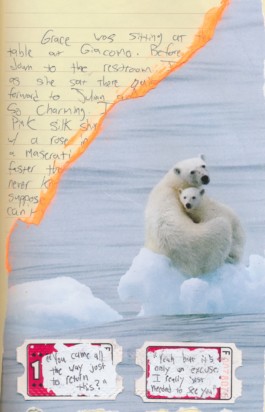 Grace was sitting at the
table at Giacomo. Before
down to the restroom
as she sat there
forward to Julian
So Charming
Pink silk
w/ a rose in
a Maserati
faster
never
suppos
can
1
"You came all
the way just
to return
this?"
"Yeah but it's
only an excuse.
I really just
needed to see you"